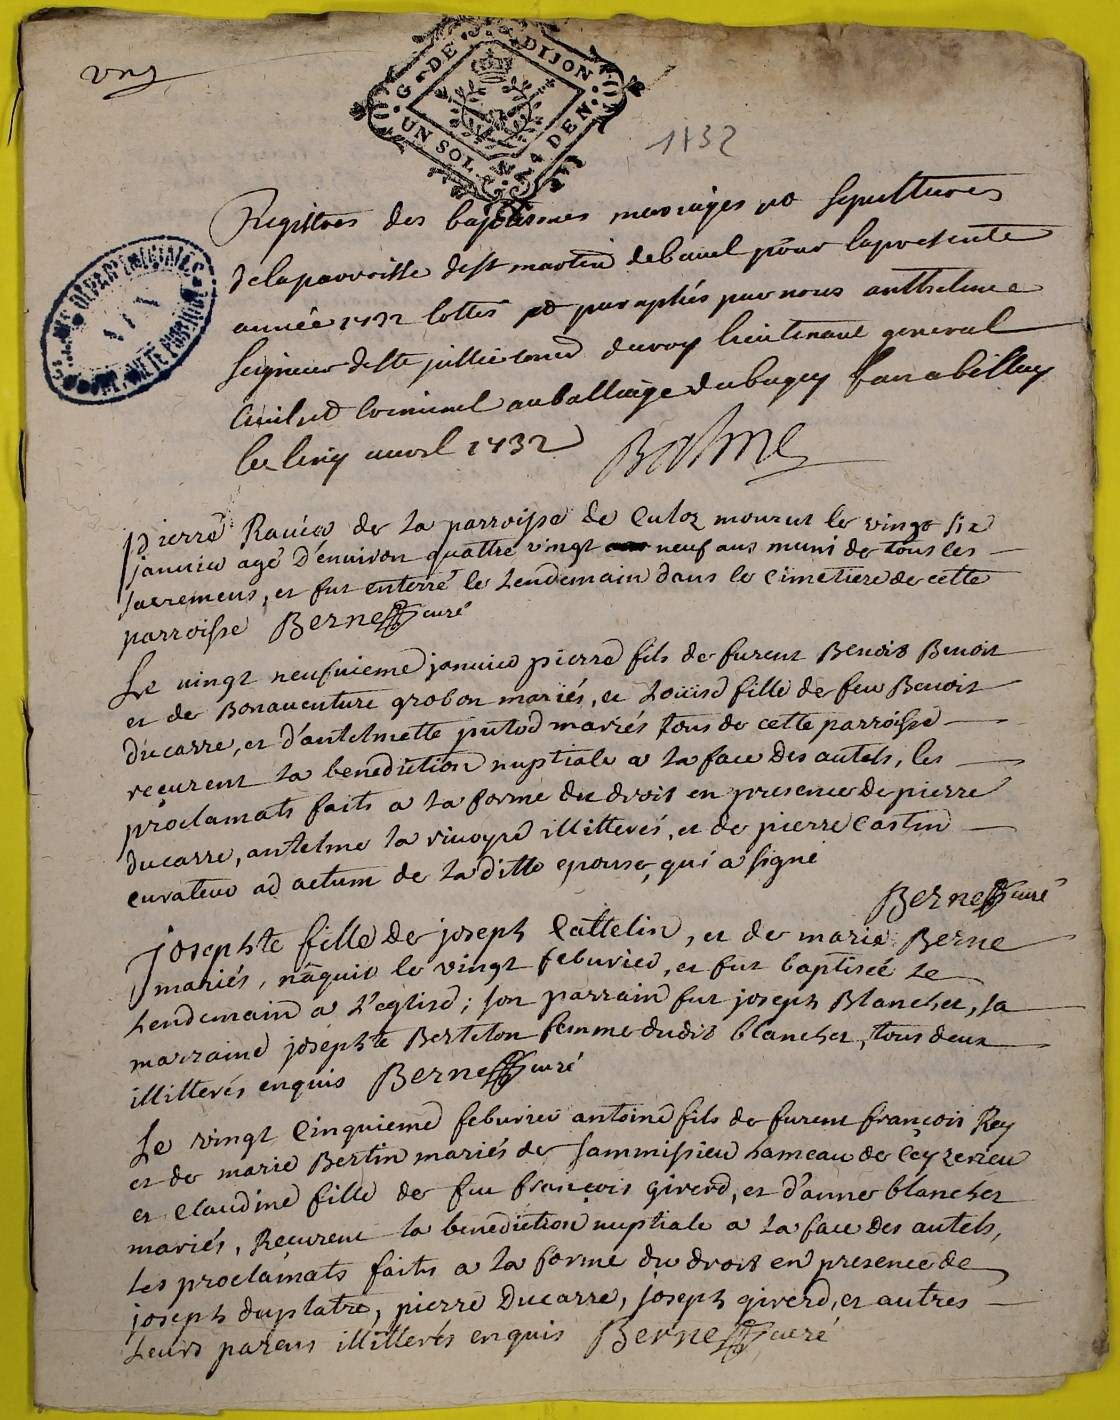 G. DE DIJON
UN SOL 4 DEN.
1732
Registres des baptesmes mariages et sepultures
delaparroisse dest martin debavel pour lapresente
année 1732 cottés et paraphés par nous anthelme
seigneur deste jullie conr du roy lieutenant general
civil et criminel auballiage dubugey fait a belley
le cinq avril 1732 Balme
ARCHIVES DEPARTEMENTALES
AIN
Pierre Ravier de la parroisse de Culoz mourut le vingt six
janvier agé d'environ quattre vingt neuf ans muni de tous les
sacremens, et fut enterré le Lendemain dans le Cimetiere de cette
parroisse Berne curé
Le vingt neufvieme janvier pierre fils de furent Benoit Benoit
et de Bonaventure grobon mariés, et Louise fille de feu Benoit
Ducarre, et d'antelmette jutod mariés tous de cette parroisse
reçurent la benediction nuptiale a la face Des autels, les
proclamats faits a la forme du droit en presence de pierre
Ducarre, antelme la vivoyre illitterés, et de pierre Castin
curateur ad actum de la ditte epouse, qui a signé
Berne curé
josephte fille de joseph Cattelin, et de marie Berne
mariés, náquit le vingt febvrier, et fut baptisée Le
Lendemain a L'eglise; son parrain fut joseph Blanchet, sa
marraine josephte Bertelon femme dudit blanchet, tous deux
illitterés enquis Berne curé
Le vingt Cinquieme febvrier antoine fils de furent françois Rey
et de marie Bertin mariés de sammissieu hameau de Ceyzerieu
et Claudine fille de feu françois girerd, et d'anne blanchet
mariés, Reçurent la benediction nuptiale a la face Des autels,
Les proclamats faits a la forme du droit en presence de
joseph duplatre, pierre Ducarre, joseph girerd, et autres
Leurs parens illitterés enquis Berne curé